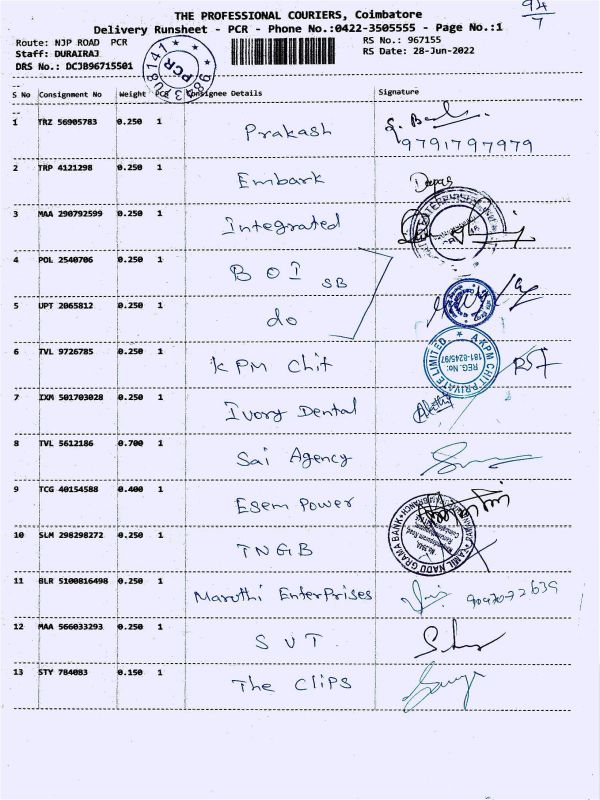 94
7
THE PROFESSIONAL COURIERS, Coimbatore
Delivery Runsheet - PCR - Phone No.:0422-3505555 - Page No.:1
Route: NJP ROAD PCR
RS No.: 967155
Staff: DURAIRAJ
RS Date: 28-Jun-2022
DRS No.: DCJB96715501
PCR
S No Consignment No Weight PCS Consignee Details Signature
1 TRZ 56905783 0.250 1 Prakash
9791797979
2 TRP 4121298 0.250 1 Embark Deepa
3 MAA 290792599 0.250 1 Integrated
4 POL 2540706 0.250 1 BOI SB
5 UPT 2065812 0.250 1 do
6 TVL 9726785 0.250 1 KPM Chit
AKPM CHIT PRIVATE LIMITED
REG. No:
181-8245/97
7 IXM 501703028 0.250 1 Ivory Dental
8 TVL 5612186 0.700 1 Sai Agency
9 TCG 40154588 0.400 1 Esem Power
10 SLM 298298272 0.250 1 TNGB
TAMIL NADU GRAMA BANK
11 BLR 5100816498 0.250 1 Maruthi Enterprises
12 MAA 566033293 0.250 1 SVT
13 STY 784083 0.150 1 The Clips